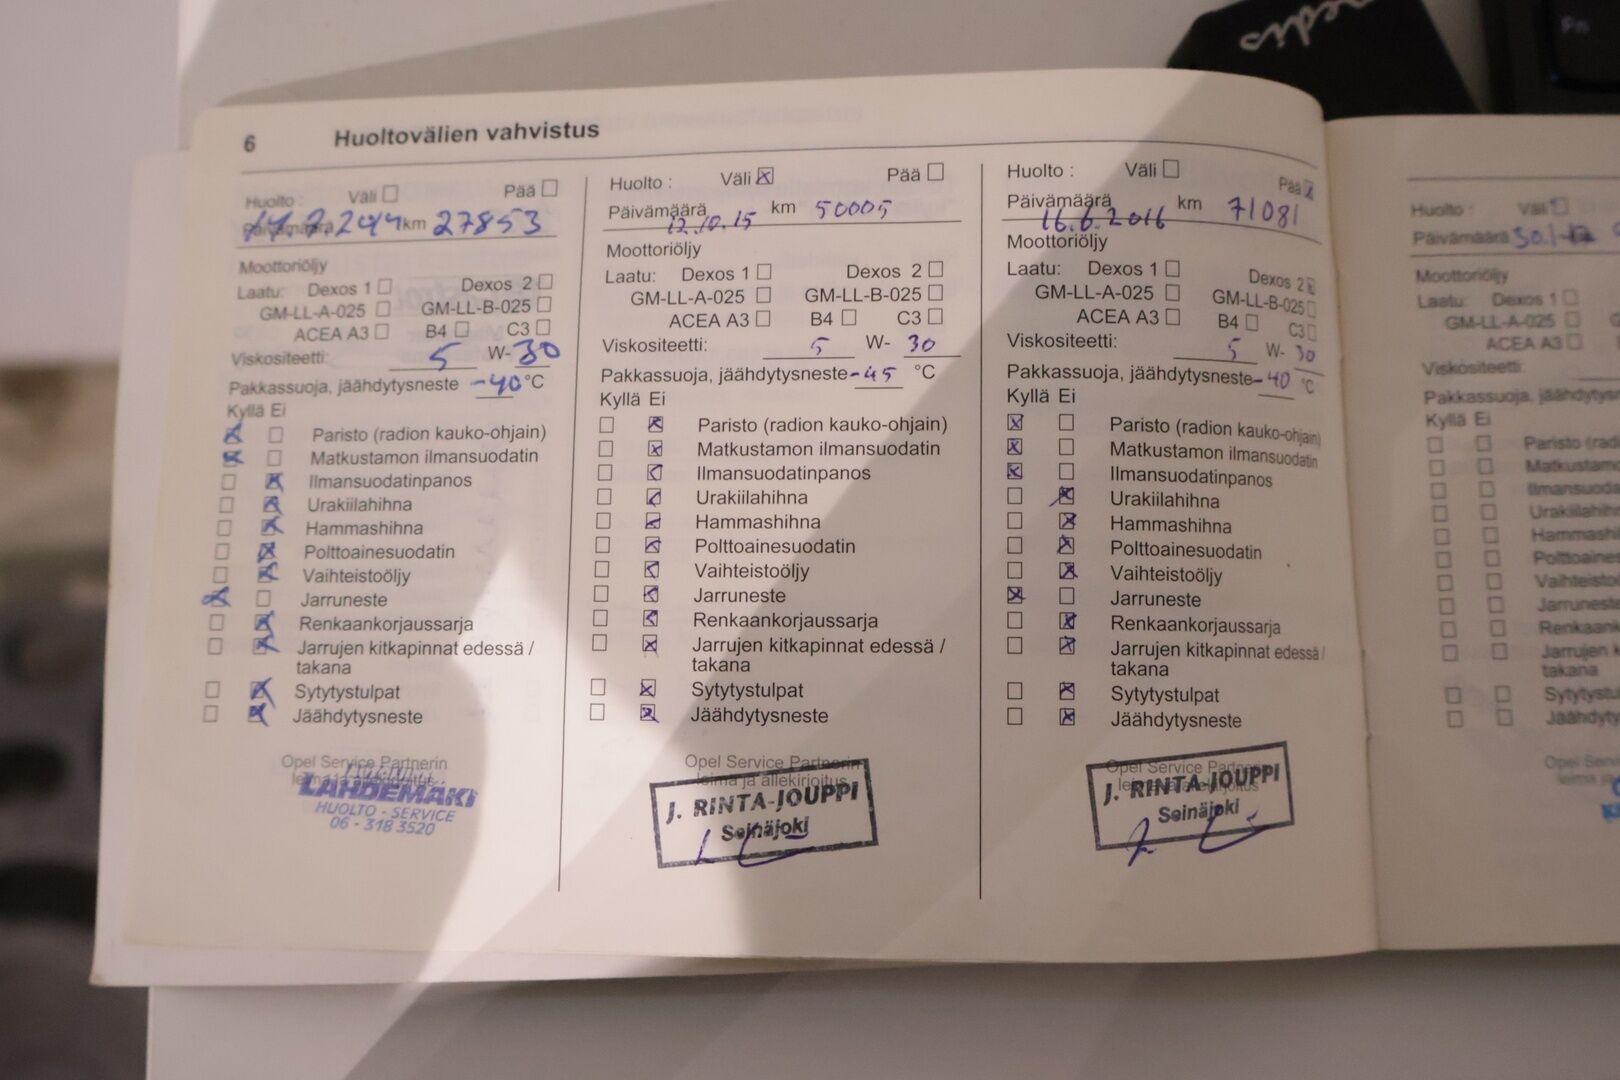 edis
Fn
6 Huoltovälien vahvistus
Huolto : Väli Pää
Päivämäärä km 27853
Moottoriöljy
Laatu: Dexos 1 Dexos 2
GM-LL-A-025 GM-LL-B-025
ACEA A3 B4 C3
Viskositeetti: 5 W- 30
Pakkassuoja, jäähdytysneste -40 °C
Kyllä Ei
Paristo (radion kauko-ohjain)
Matkustamon ilmansuodatin
Ilmansuodatinpanos
Urakiilahihna
Hammashihna
Polttoainesuodatin
Vaihteistoöljy
Jarruneste
Renkaankorjaussarja
Jarrujen kitkapinnat edessä /
takana
Sytytystulpat
Jäähdytysneste
Opel Service Partnerin
leima ja allekirjoitus
LAHDEMÄKI
HUOLTO - SERVICE
06 - 318 3520
Huolto : Väli Pää
Päivämäärä 12.10.15 km 50005
Moottoriöljy
Laatu: Dexos 1 Dexos 2
GM-LL-A-025 GM-LL-B-025
ACEA A3 B4 C3
Viskositeetti: 5 W- 30
Pakkassuoja, jäähdytysneste -45 °C
Kyllä Ei
Paristo (radion kauko-ohjain)
Matkustamon ilmansuodatin
Ilmansuodatinpanos
Urakiilahihna
Hammashihna
Polttoainesuodatin
Vaihteistoöljy
Jarruneste
Renkaankorjaussarja
Jarrujen kitkapinnat edessä /
takana
Sytytystulpat
Jäähdytysneste
Opel Service Partnerin
leima ja allekirjoitus
J. RINTA-JOUPPI
Seinäjoki
Huolto : Väli Pää
Päivämäärä 16.6.2016 km 71081
Moottoriöljy
Laatu: Dexos 1 Dexos 2
GM-LL-A-025 GM-LL-B-025
ACEA A3 B4 C3
Viskositeetti: 5 W- 30
Pakkassuoja, jäähdytysneste -40 °C
Kyllä Ei
Paristo (radion kauko-ohjain)
Matkustamon ilmansuodatin
Ilmansuodatinpanos
Urakiilahihna
Hammashihna
Polttoainesuodatin
Vaihteistoöljy
Jarruneste
Renkaankorjaussarja
Jarrujen kitkapinnat edessä /
takana
Sytytystulpat
Jäähdytysneste
Opel Service Partnerin
leima ja allekirjoitus
J. RINTA-JOUPPI
Seinäjoki
Huolto : Väli
Päivämäärä
Moottoriöljy
Laatu: Dexos 1
GM-LL-A-025
ACEA A3
Viskositeetti:
Pakkassuoja, jäähdytysnes
Kyllä Ei
Paristo (rad
Matkustam
Ilmansuoda
Urakiilahih
Hammashih
Polttoaines
Vaihteistoö
Jarruneste
Renkaank
Jarrujen k
takana
Sytytystu
Jäähdyty
Opel Se
leima ja